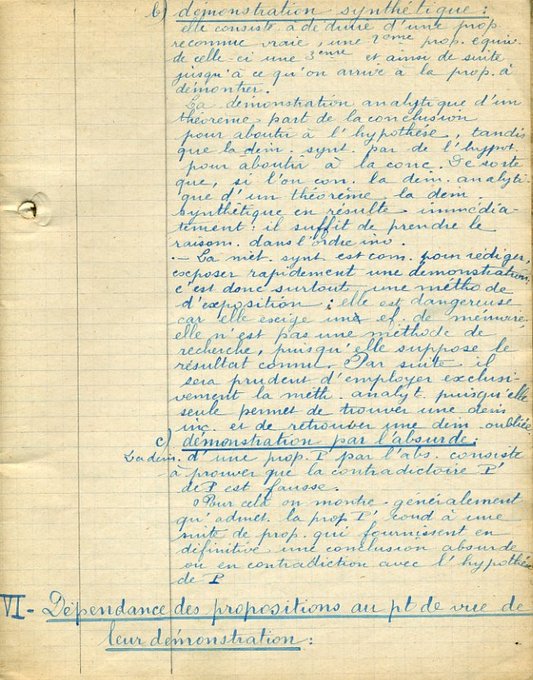 b) démonstration synthétique :
elle consiste à déduire d'une prop.
reconnue vraie, une 2ème prop. équiv.
de celle-ci une 3ème et ainsi de suite
jusqu'à ce qu'on arrive à la prop. à
démontrer.
La démonstration analytique d'un
théorème part de la conclusion
pour aboutir à l'hypothèse, tandis
que la dém. synt. par de l'hypot.
pour aboutir à la conc. De sorte
que, si l'on con. la dém. analyti-
que d'un théorème la dém.
synthétique en résulte immédia-
tement : il suffit de prendre le
raison. dans l'ordre inv.
- La mét. synt est com. pour rédiger,
exposer rapidement une démonstration,
c'est donc surtout, une méthode
d'exposition ; elle est dangereuse
car elle exige un ef. de mémoire,
elle n'est pas une méthode de
recherche, puisqu'elle suppose le
résultat connu. Par suite il
sera prudent d'employer exclusi-
vement la méth. analyt. puisqu'elle
seule permet de trouver une dém
inc. et de retrouver une dém. oubliée.
c) démonstration par l'absurde :
La dém. d'une prop. P par l'abs. consiste
à prouver que la contradictoire P'
de P est fausse.
Pour cela on montre généralement
qu'admet. la prop P' cond à une
suite de prop. qui fournissent en
définitive une conclusion absurde
ou en contradiction avec l'hypothèse
de P
VI - Dépendance des propositions au pt de vue de
leur démonstration :